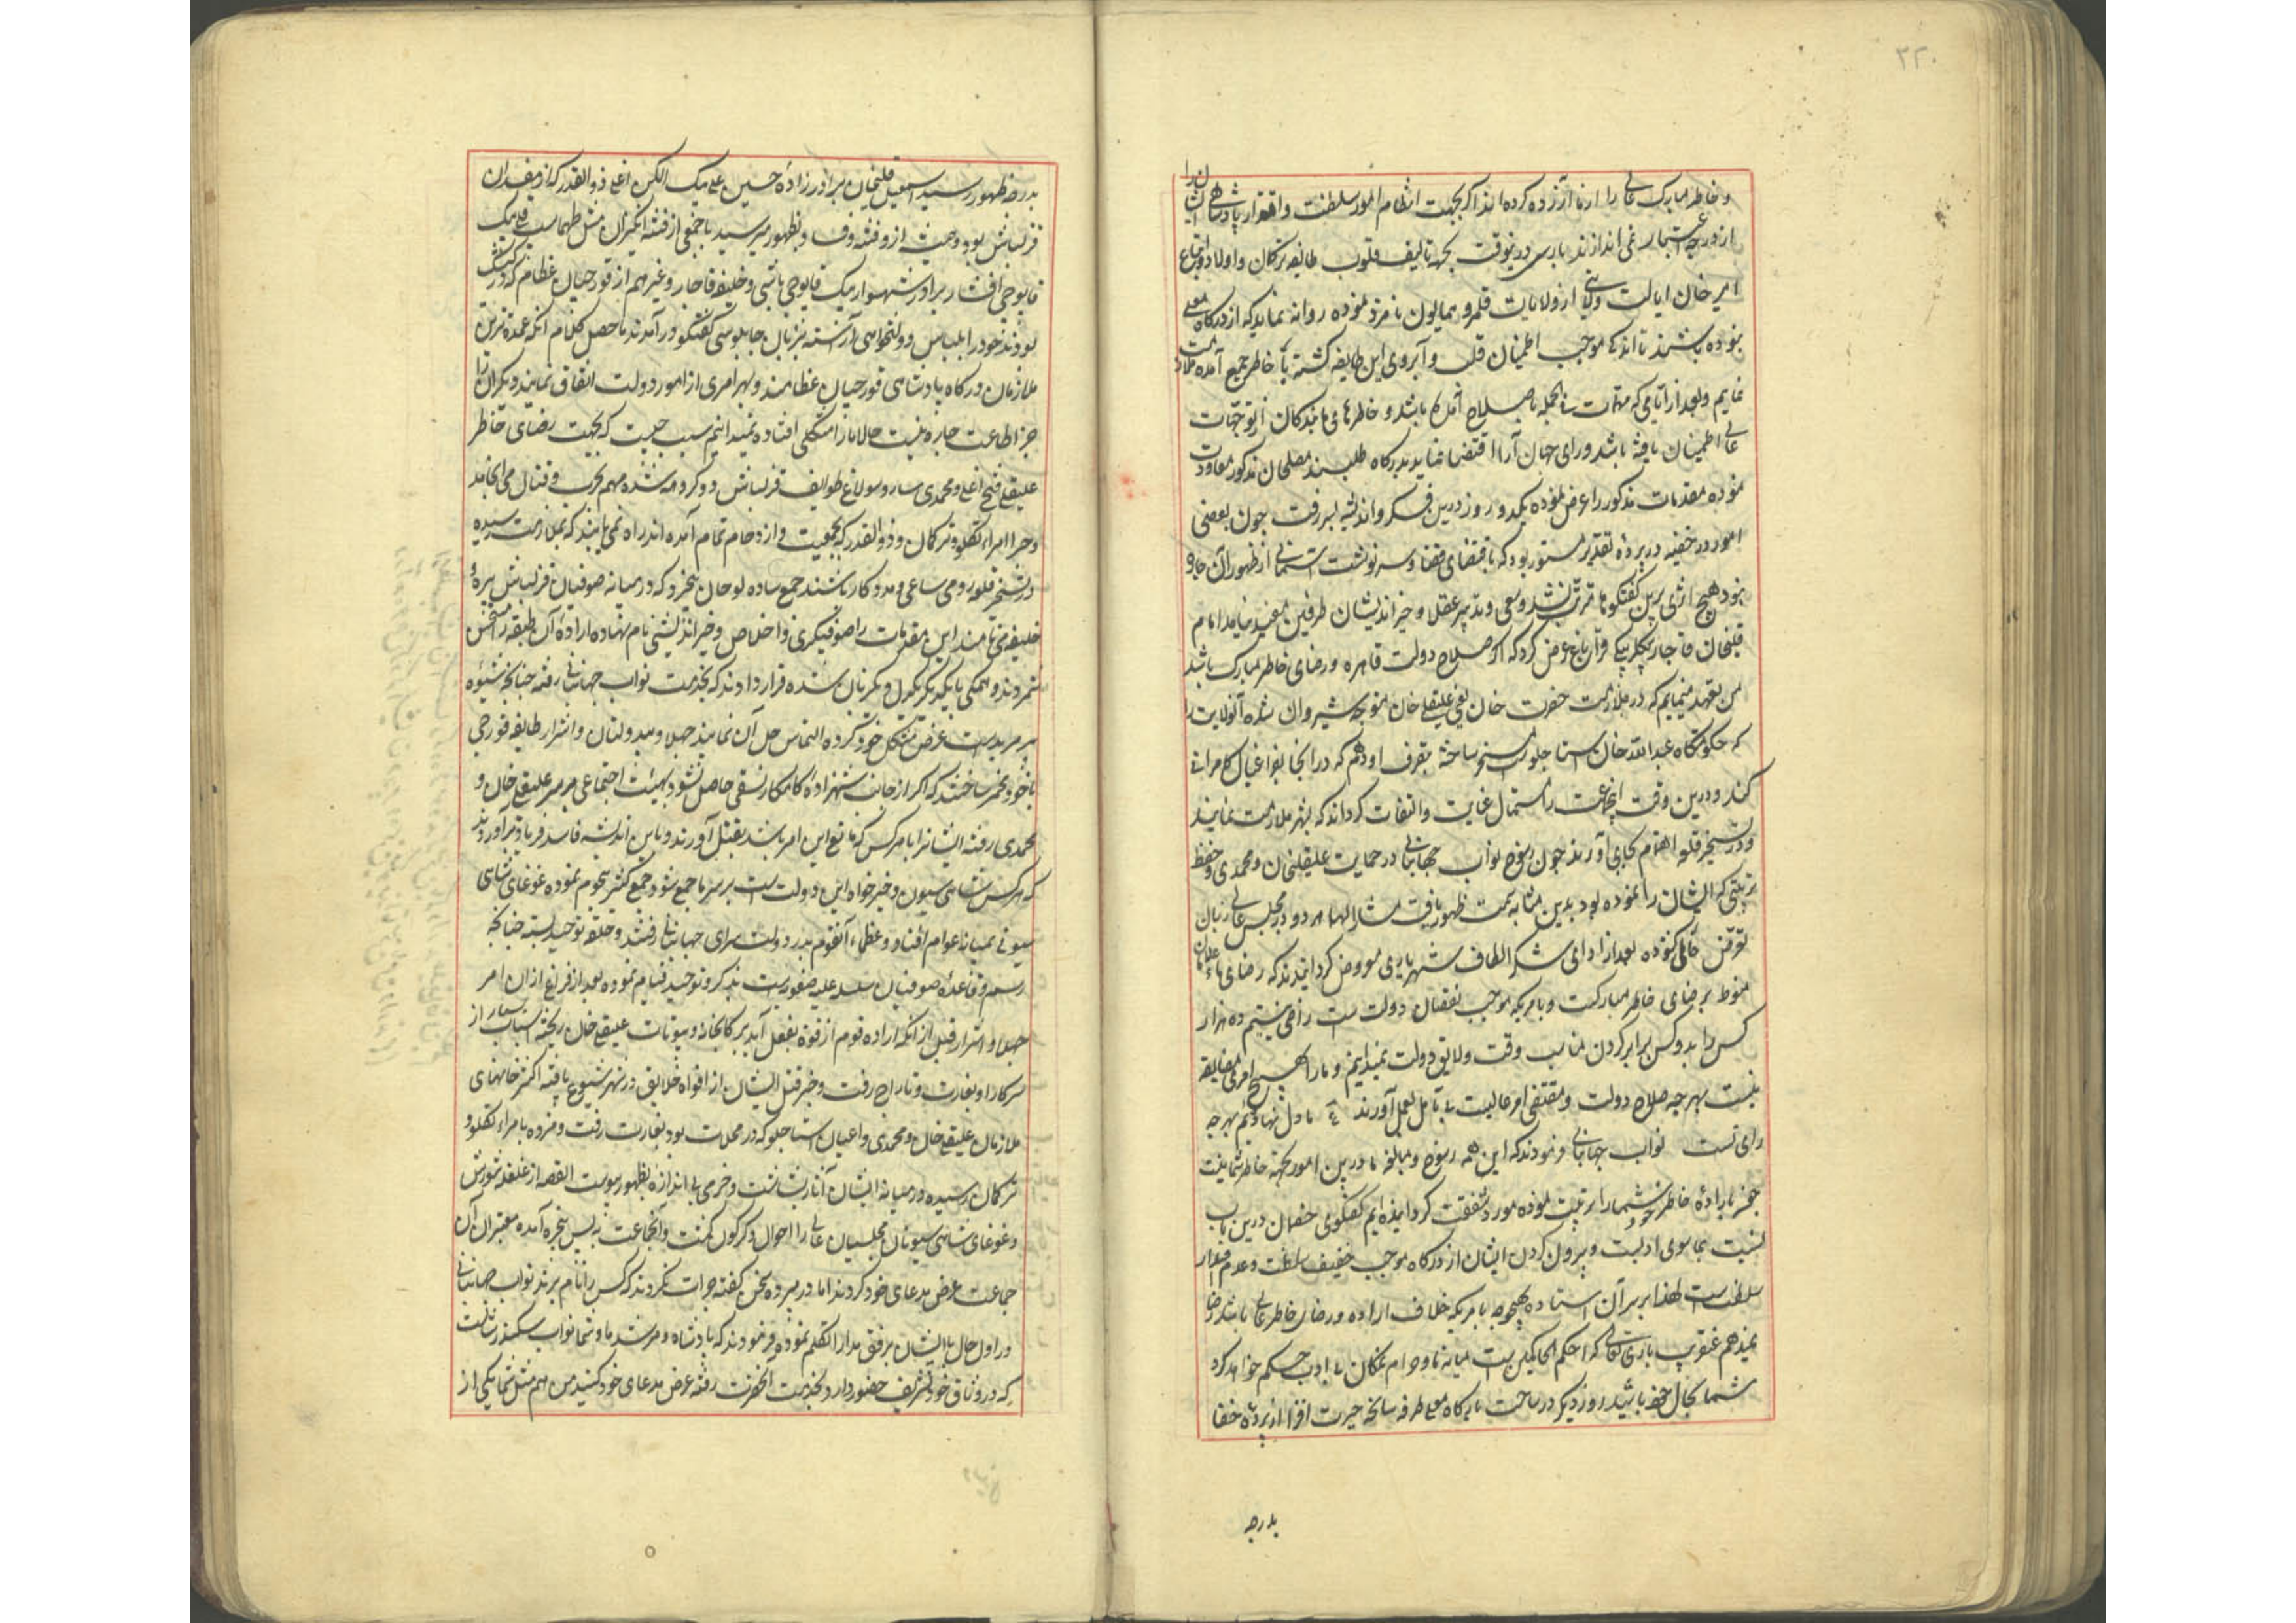 ۳۲۰
و خاطر مبارک عالی را از ما آزرده کرده‌اند اگر بجهت انتظام امور سلطنت و اقتدار پادشاهی ایشان را
از درجه اعتبار نمی‌اندازند باری درینوقت بجهة تألیف قلوب طایفه ترکمان و اولاد و اتباع
امیر خان ایالت ولایتی از ولایات قلمرو همایون نامزد نموده روانه نمایند که از درگاه معلی
بوده باشند تا اندک موجب اطمینان قلب و آبروی این طایفه گشته با خاطر جمع آمده ملازمت
نمایم و بعد از آنامی که مهمات فی الجمله باصلاح آمده باشد و خاطرهای ما بندگان از توجهات
عالی اطمینان یافته باشد و رای جهان آرا اقتضا نماید بدرگاه طلبند مصلحان مذکور معاودت
نموده مقدمات مذکور را عرض نموده یکدو روز درین فکر و اندیشه بسر رفت چون بعضی
امور در خفیه در پرده تقدیر مستور بود که باقتضای قضا و سرنوشت آسمانی از ظهور آن چاره
نبود هیچ اثری برین گفتگوها مترتب نشد و سعی و تدبیر عقلا و خیر اندیشان طرفین مفید نیامد امام
قلیخان قاجار بیگلربیگی قراباغ عرض کرد که اگر صلاح دولت قاهره و رضای خاطر مبارک باشد
من تعهد مینمایم که در ملازمت حضرت خان یعنی علیقلی خان متوجه شیروان شده آنولایت را
که حکومتگاه عبدالله خان استاجلو است مسخر ساخته بتصرف او دهم که در آنجا بفراغبال کامرانی
کند و درین وقت انجماعت را استمال عنایت و التفات گردانند که بشهر ملازمت نمایند
و در تسخیر قلعه اهتمام بجای آورند چون رسوخ نواب جهانبانی در حمایت علیقلیخان و محمدی و حفظ
تربیتی که ایشان را نموده بود بدین مثابه سمت ظهور یافت مشارالیهما هر دو در مجلس عالی زبان
تعرض خالی نموده بعد از ادای شکر الطاف شهریاری معروض گردانیدند که رضای ما غلامان
منوط برضای خاطر مبارکست و بامریکه موجب نقصان دولت است راضی نیستیم ده هزار
کس را بدو کس برابر کردن مناسب وقت و لایق دولت نمیدانیم و ما را بهیچ امری مضایقه
نیست بهر چه صلاح دولت و مقتضی امر عالیست بی تأمل بعمل آورند ع ما دل نهاده‌ایم بهر چه
رای تست نواب جهانبانی فرمودند که این همه رسوخ و مبالغه ما درین امور بجهة خاطر شما نیست
چون باراده خاطر خود شما را تربیت نموده مورد شفقت گردانیده‌ایم گفتگوی خصمان درین باب
نسبت بما سوی ادبست و بیرون کردن ایشان از درگاه موجب خفیف سلطنت و عدم اقتدار
سلطنت است لهذا بر سر آن ایستاده بهیچوجه بامریکه خلاف اراده و رضای خاطر عالی باشد رضا
نمیدهم عنقریب باری تعالی که احکم الحاکمین است میانه ما و حرام نمکان بی ادب حکم خواهد کرد
شما بحال خود باشید روز دیگر در ساحت بارگاه معلی طرفه سانحه حیرت افزا از پرده خفا
بدرجه
بدرجه ظهور رسید اسمعیل قلیخان برادرزاده حسین علی بیک الکسن اغلی ذوالقدر که از مفسدان
قزلباش بود و همیشه ازو فتنه و فساد بظهور میرسید با جمعی از فتنه انگیزان مثل طهماسب قلی بیک
قاپوچی افشار برادر شهسوار بیک قاپوچی باشی و خلیفه قاجار و غیرهم از قورچیان عظام که در کشیک
بودند خود را بلباس دولتخواهی آراسته بزبان چاپلوسی گفتگو درآمدند ماحصل کلام آنکه عمده‌ترین
ملازمان درگاه پادشاهی قورچیان عظامند و بهر امری از امور دولت اتفاق نمایند دیگران را
جز اطاعت چاره نیست حالا ما را مشکلی افتاده نمیدانیم سبب چیست که بجهت رضای خاطر
علیقلی فتح اغلی و محمدی سارو سولاغ طوایف قزلباش دو گروه شده مهم بحرب و قتال می‌انجامد
و چرا امراء تکلو و ترکمان و ذوالقدر که بجمعیت و ازدحام تمام آمده‌اند راه نمی‌یابند که بملازمت رسیده
در تسخیر قلعه رومی ساعی و مددکار باشند جمع ساده لوحان بیخرد که در میانه صوفیان قزلباش پیره و
خلیفه می‌نامند این مقدمات را صوفیگری و اخلاص و خیر اندیشی نام نهاده اراده آن طبقه را مستحسن
شمردند و همگی با یکدیگر یکدل و یکزبان شده قرار دادند که بخدمت نواب جهانبانی رفته چنانچه شیوه
پیر مریدیست عرض مشکل خود کرده التماس حل آن نمایند جهلا و بیدولتان و اشرار طایفه قورچی
با خود مخمر ساختند که اگر از جانب شهزاده کامکار نسقی حاصل نشود بهیئت اجتماعی بر سر علیقلی خان و
محمدی رفته ایشانرا با هر کس که مانع این امر باشد بقتل آورند و باین اندیشه فاسد فریاد برآوردند
که هر کس شاهی سیون و خیرخواه این دولت است بر سر ما جمع شود جمع کثیر هجوم نموده غوغای شاهی
سیونی بمیانه عوام افتاد و عظماء آنقوم بدر دولت سرای جهانبانی رفتند و حلقه توحید بسته چنانچه
رسم و قاعده صوفیان سلسله علیه صفویست بذکر و توحید قیام نموده بعد از فراغ ازان امر
جهلا و اشرار قبل از آنکه اراده قوم از قوه بفعل آید بر کابخانه و بیوتات علیقلی خان ریخته اسباب بسیار از
سرکار او بغارت و تاراج رفت و خبر قتل ایشان از افواه خلایق در شهر شیوع یافته اکثر خانهای
ملازمان علیقلی خان و محمدی و اعیان استاجلو که در محلات بود بغارت رفت و مژده بامراء تکلو و
ترکمان رسیده در میانه ایشان آثار بشاشت و خرمی بی اندازه بظهور پیوست القصه از غلغله شورش
و غوغای شاهی سیونان مجلسیان عالی را احوال دگرگون گشت و آنجماعت به پس پنجره آمده معتبران آن
جماعت عرض مدعای خود کردند اما در پرده سخن گفته جرات نکردند که کس را نام برند نواب جهانبانی
در اول حال با ایشان برفق و مدارا تکلم نموده فرمودند که پادشاه و مرشد ما و شما نواب سکندر شانست
که در وثاق خود تشریف حضور دارد بخدمت آنحضرت رفته عرض مدعای خود کنید من هم مثل شما یکی از